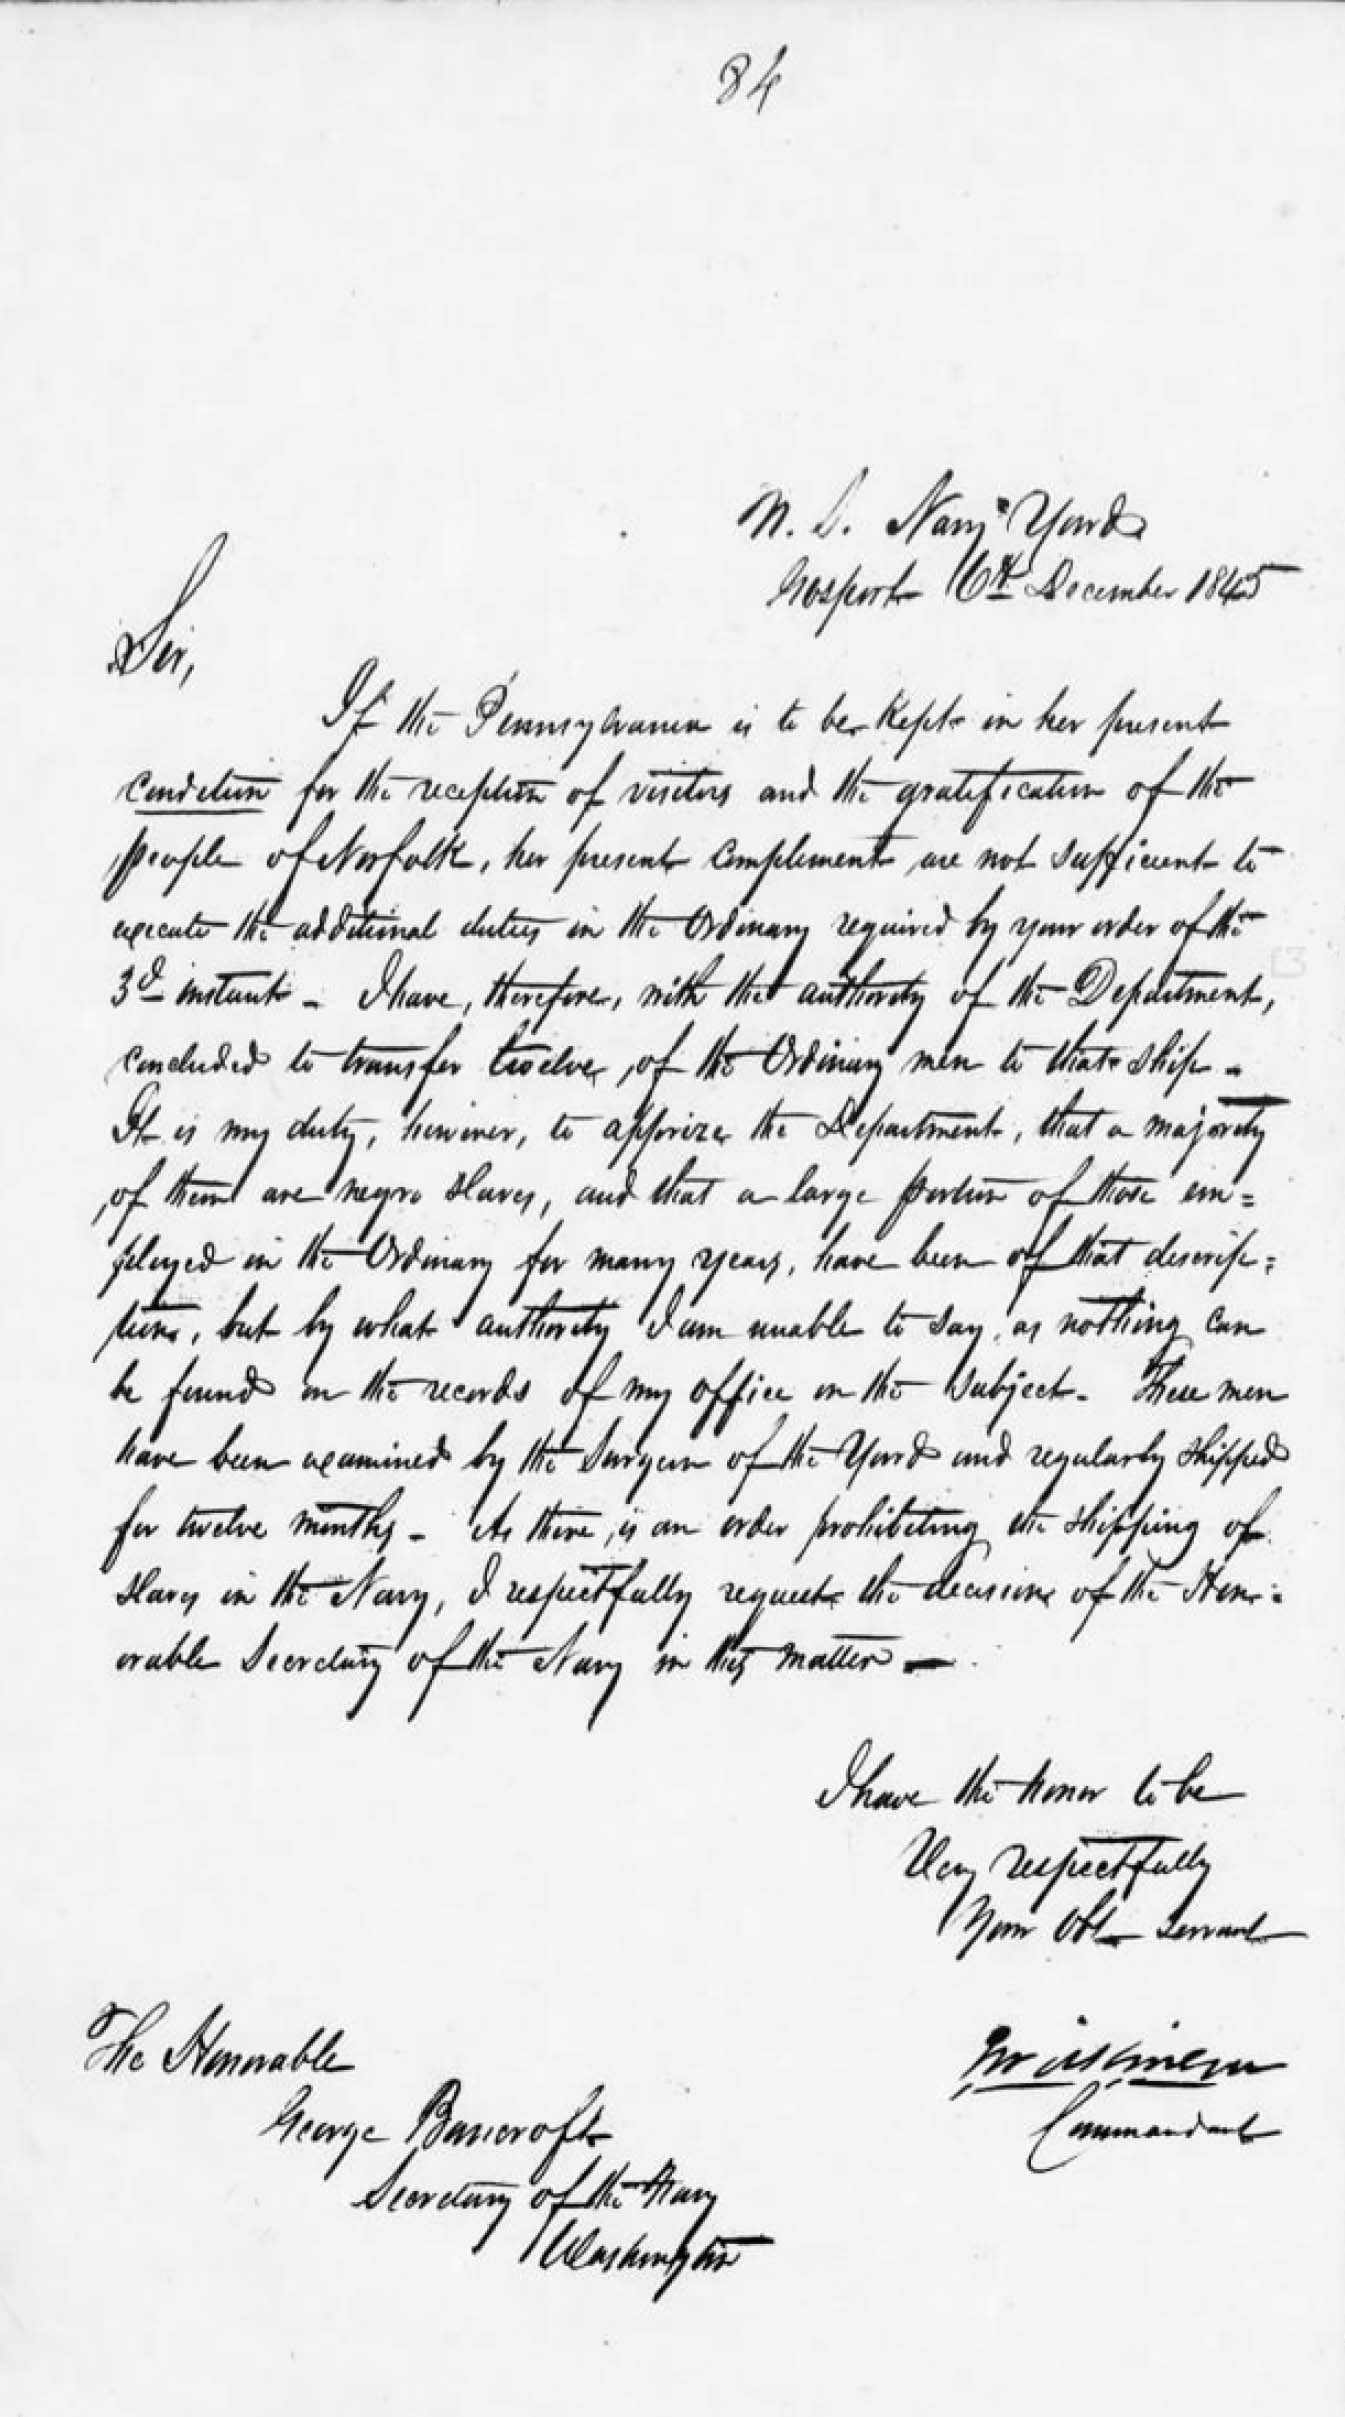 84
U. S. Navy Yard
Gosport 6th December 1845
Sir,
If the Pennsylvania is to be kept in her present
condition for the reception of visitors and the gratification of the
people of Norfolk, her present complement are not sufficient to
execute the additional duties in the Ordinary required by your order of the
3d instant - I have, therefore, with the authority of the Department,
concluded to transfer twelve, of the Ordinary men to that ship -
It is my duty, however, to apprize the Department, that a majority
of them are negro slaves, and that a large portion of those em=
ployed in the Ordinary for many years, have been of that descrip=
tion, but by what authority I am unable to say, as nothing can
be found in the records of my office on the subject - These men
have been examined by the Surgeon of the Yard and regularly shipped
for twelve months - As there is an order prohibiting the shipping of
slaves in the Navy, I respectfully request the decision of the Hon=
orable Secretary of the Navy in this matter -
I have the honor to be
Very respectfully
Your Obt servant
The Honorable
George Bancroft
Secretary of the Navy
Washington
Commandant